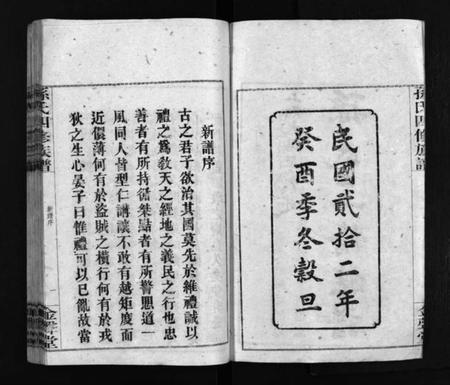 民國貳拾二年
癸酉季冬穀旦
孫氏四修族譜
新譜序
古之君子欲治其國莫先於維禮誠以
禮之爲敎天之經地之義民之行也忠
善者有所持循桀黠者有所警懲道一
風同人皆型仁講讓不敢有越矩度而
近儇薄何有於盜賊之橫行何有於戎
狄之生心晏子曰惟禮可以已亂故當
孫氏四修族譜
新譜序